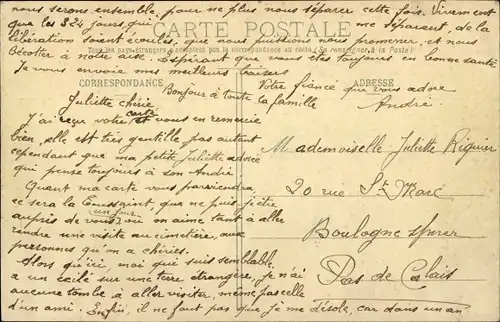 nous serons ensemble, pour ne plus nous séparer cette fois. Vivement
que les 324 jours, qui me séparent, de la
CARTE POSTALE
libération soient écoulés que nous puissions nous promener, et nous
Tous les pays étrangers n'acceptent pas la correspondance au recto (Se renseigner à la Poste)
Bécotter à notre aise. Espérant que vous êtes toujours en bonne santé
Je vous envoie mes meilleurs baisers
CORRESPONDANCE
Votre fiancé que vous adore
ADRESSE
Bonjour à toute la famille
André.
Juliette chérie
J'ai reçue votre carte et vous en remercie
bien, elle est très gentille pas autant
cependant que ma petite Juliette adorée
qui pense toujours à son André.
Quant ma carte vous parviendra,
ce sera la Toussaint, que ne puis-je être
auprès de vous, un jour où on aime tant à aller
rendre une visite au cimetière, aux
personnes qu'on a chéries.
Alors qu'ici, moi qui suis semblable
a un exilé sur une terre étrangère, je n'ai
aucune tombe à aller visiter, même pas celle
d'un ami. Enfin, il ne faut pas que je me désole, car dans un an
Mademoiselle Juliette Riquier
20 rue St Marc
Boulogne s/mer
Pas de Calais